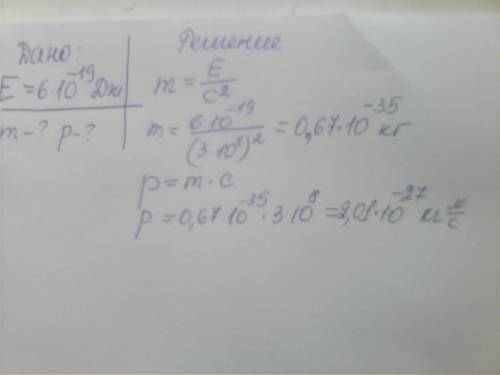 Дано:
E = 6·10⁻¹⁹ Дж
m – ? p – ?
Решение
m = E/c²
m = 6·10⁻¹⁹/(3·10⁸)² = 0,67·10⁻³⁵ кг
p = m·c
p = 0,67·10⁻³⁵·3·10⁸ = 2,01·10⁻²⁷ кг м/с